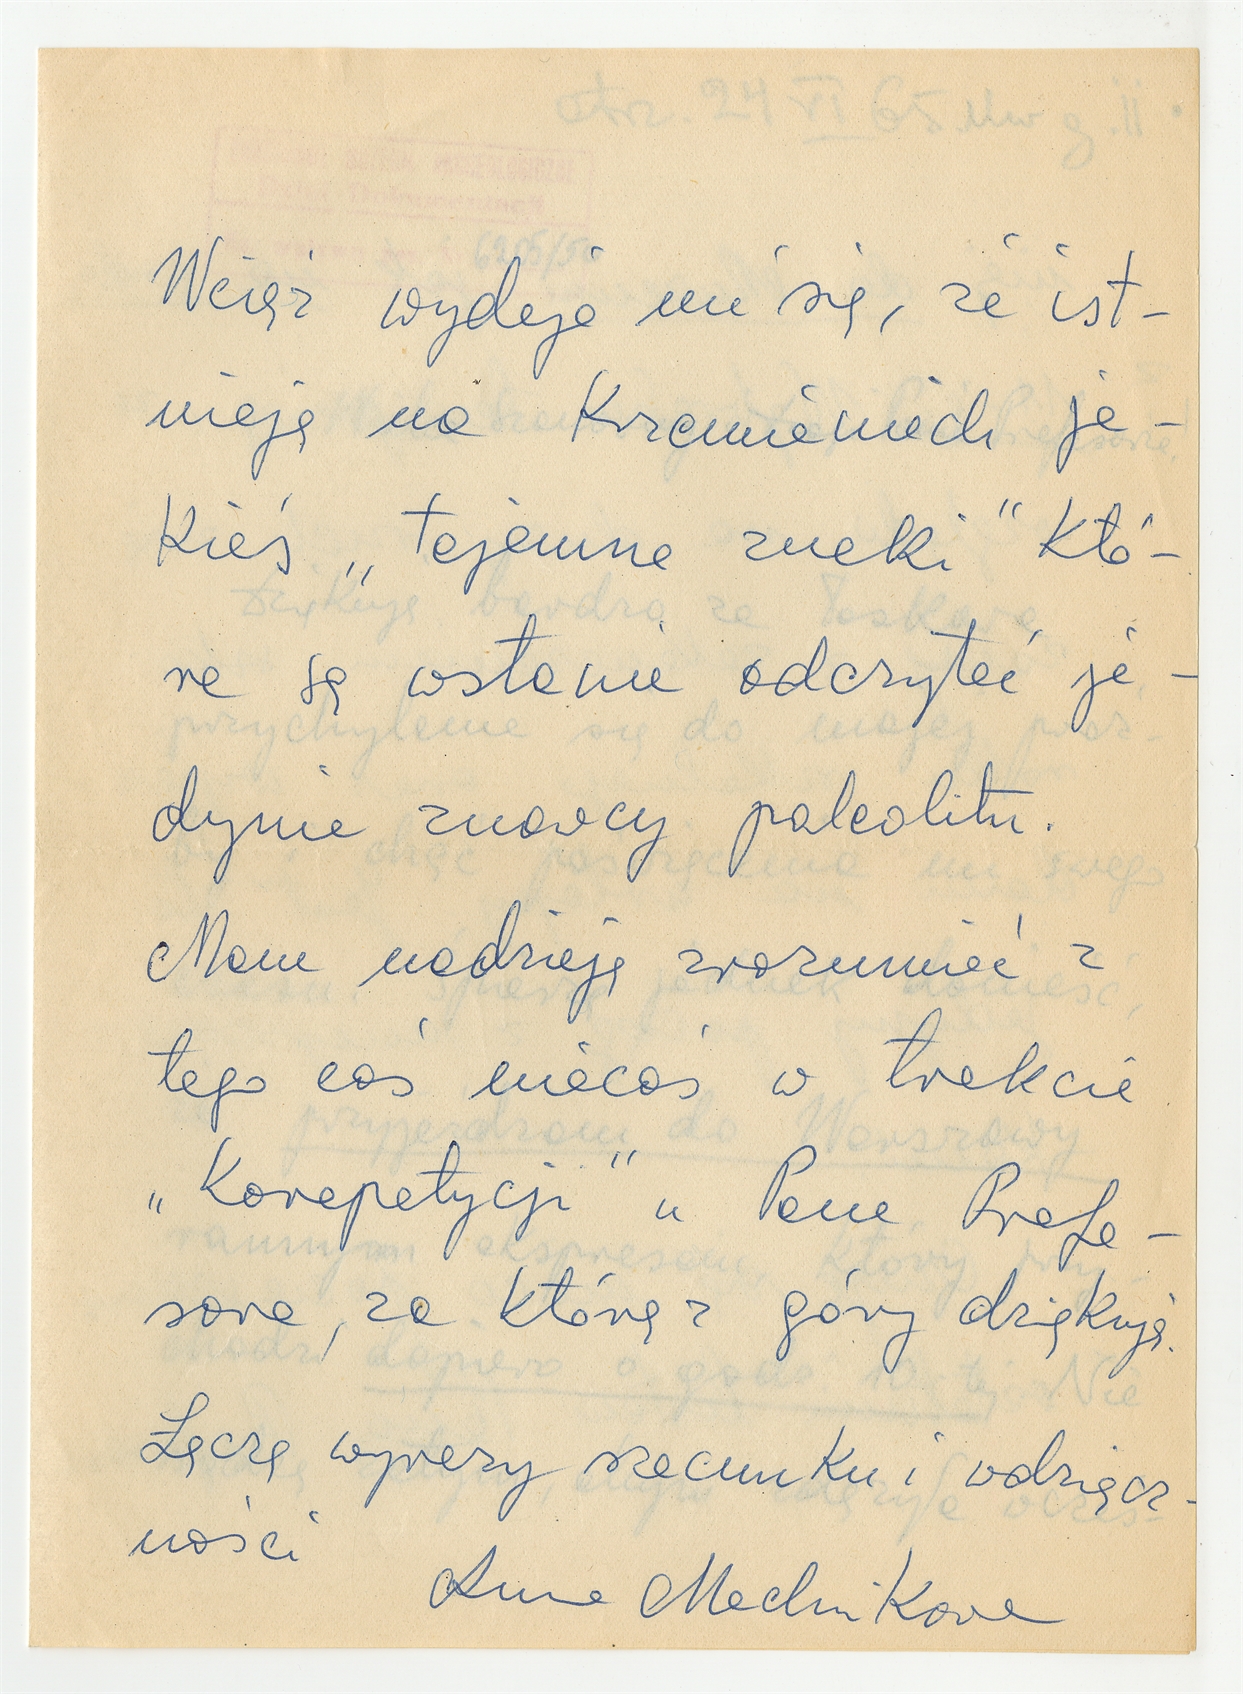 Wciąż wydaje mi się, że ist-
nieją na Krzemieniach ja-
kieś „tajemne znaki" któ-
re są wstanie odczytać je-
dynie znawcy paleolitu.
Mam nadzieję zrozumieć z
tego coś niecoś w trakcie
„Korepetycji" u Pana Profe-
sora, za którą z góry dziękuję.
Łączę wyrazy szacunku i wdzięcz-
ności
Anna Mednikova